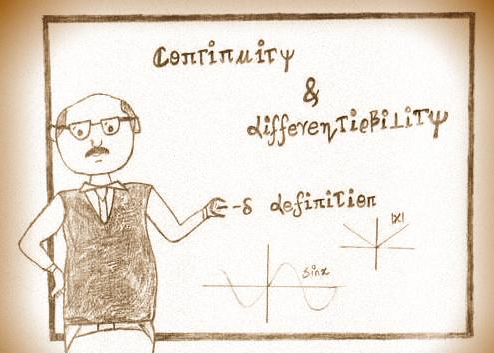 Continuity
&
differentiebility
ϵ-δ definition
|x|
sinx